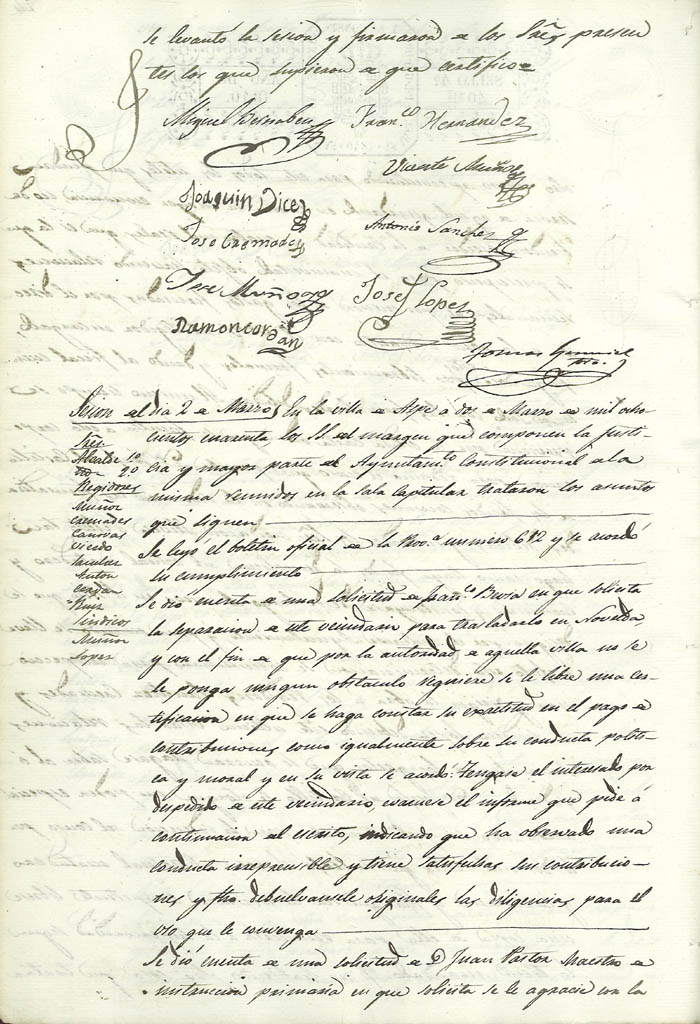 se levantó la sesion y firmaron de los Sres presen
tes los que supieron de que certifico=
Miguel Bernabeu Franco Hernandez
Vicente Muñoz
Joaquin Dicez
Jose Cremades Antonio Sanchez
Jose Muñoz Josef Lopez
Ramon Cerdan
Tomas
Sesion del dia 2 de Marzo
En la villa de Aspe á dos de Marzo de mil ocho-
cientos cuarenta los SS. del margen que componen la justi-
cia y mayor parte del Ayuntamto Constitucional de la
misma reunidos en la sala Capitular trataron los asuntos
que siguen
Sres
Alcalde 1o
2o
Regidores
Muñoz
Cremades
Canovas
Vicedo
Sanchez
Anton
Cerdan
Ruiz
Sindicos
Muñoz
Lopez
Se leyó el boletin oficial de la Prova numero 612 y se acordó
su cumplimiento
Se dio cuenta de una solicitud de Franco en que solicita
la separacion de este vecindario para trasladarlo en Novelda
y con el fin de que por la autoridad de aquella villa no se
le ponga ningun obstaculo requiere se le libre una cer-
tificacion en que se haga constar su exactitud en el pago de
contribuciones como igualmente sobre su conducta politi-
ca y moral y en su vista se acordó: Tengase el interesado por
despedido de este vecindario, evacuese el informe que pide á
continuacion del escrito, indicando que ha observado una
conducta irreprensible y tiene satisfechas sus contribucio-
nes y fho. debuelvansele originales las diligencias para el
uso que le convenga
Se dió cuenta de una solicitud de D Juan Pastor Maestro de
instruccion primaria en que solicita se le agracie con la